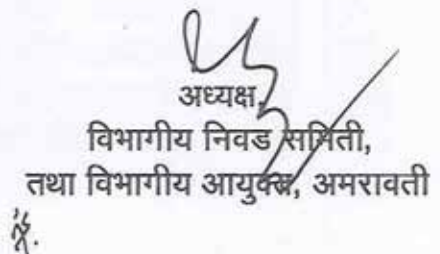 अध्यक्ष,
विभागीय निवड समिती,
तथा विभागीय आयुक्त, अमरावती